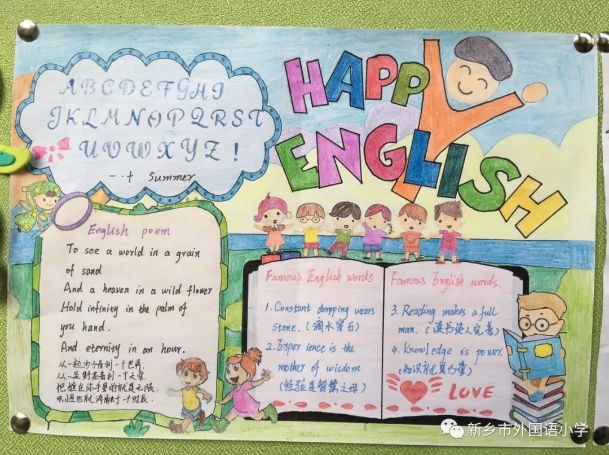 ABCDEFGHI
JKLMNOPQRST
UVWXYZ!
Summer
HAPPY
ENGLISH
English poem
To see a world in a grain
of sand
And a heaven in a wild flower
Hold infinity in the palm of
you hand.
And eternity in an hour.
从一粒沙子看到一个世界,
从一朵野花看到一个天堂
把握在你手里的就是无限,
永恒也就
Famous English words
1. Constant dropping wears
stone. (滴水穿石)
2. Exper ience is the
mother of wisdom
(经验是智慧之母)
Famous English words.
3. Reading makes a full
man. (读书使人完善)
4. Knowledge is power.
(知识就是力量)
LOVE
新乡市外国语小学